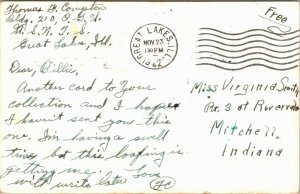 Thomas G. Compton
Bldg. 210, O.G.U.
U.S.N.T.S.
Great Lakes, Ill.
Free
GREAT LAKES, ILL.
NOV 23
130 PM
1942
Dear Billie,
Another card to your
collection and I hope
I haven't sent you this
one. I'm having a swell
time but this loafing is
getting me. Love
will write later
Miss Virginia
Pr. 3 at Riverside
Mitchell,
Indiana